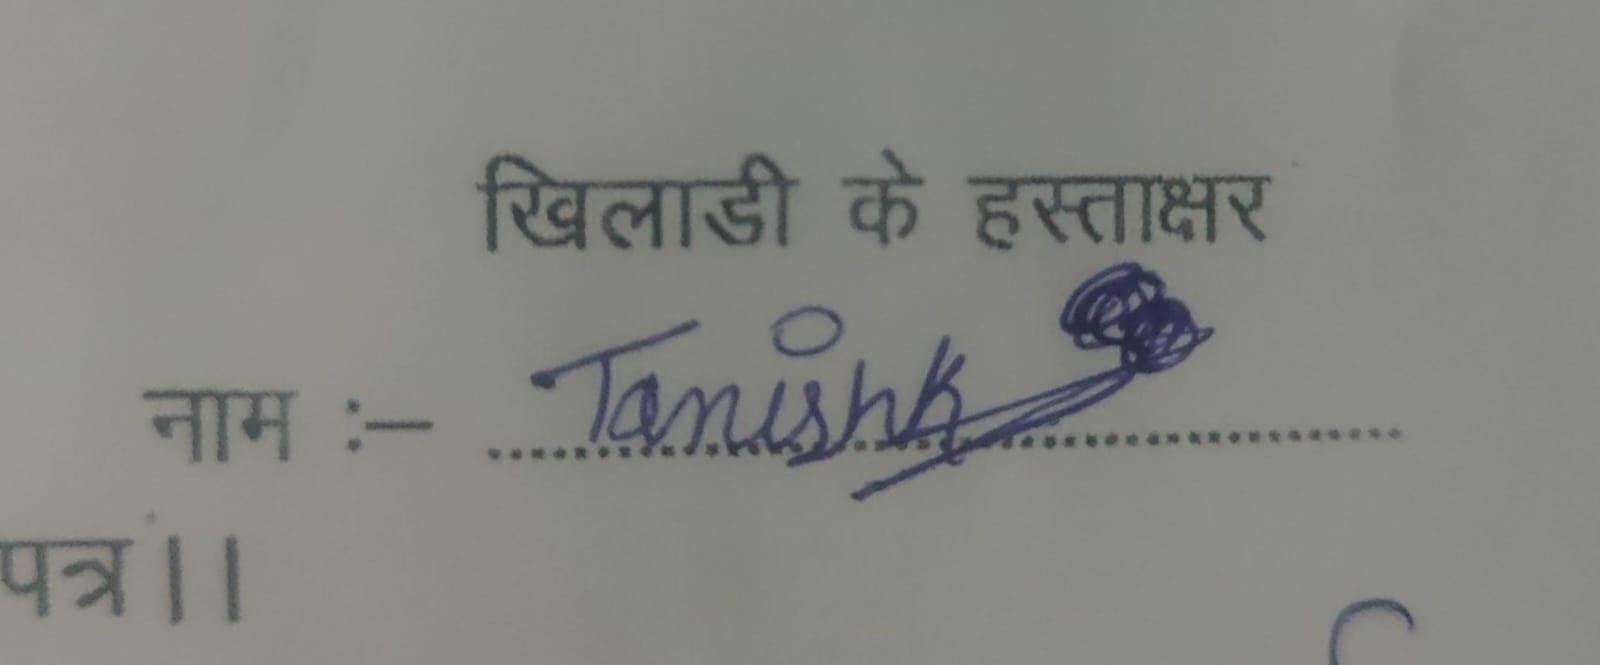 खिलाडी के हस्ताक्षर
नाम :– Tanishk
पत्र।।